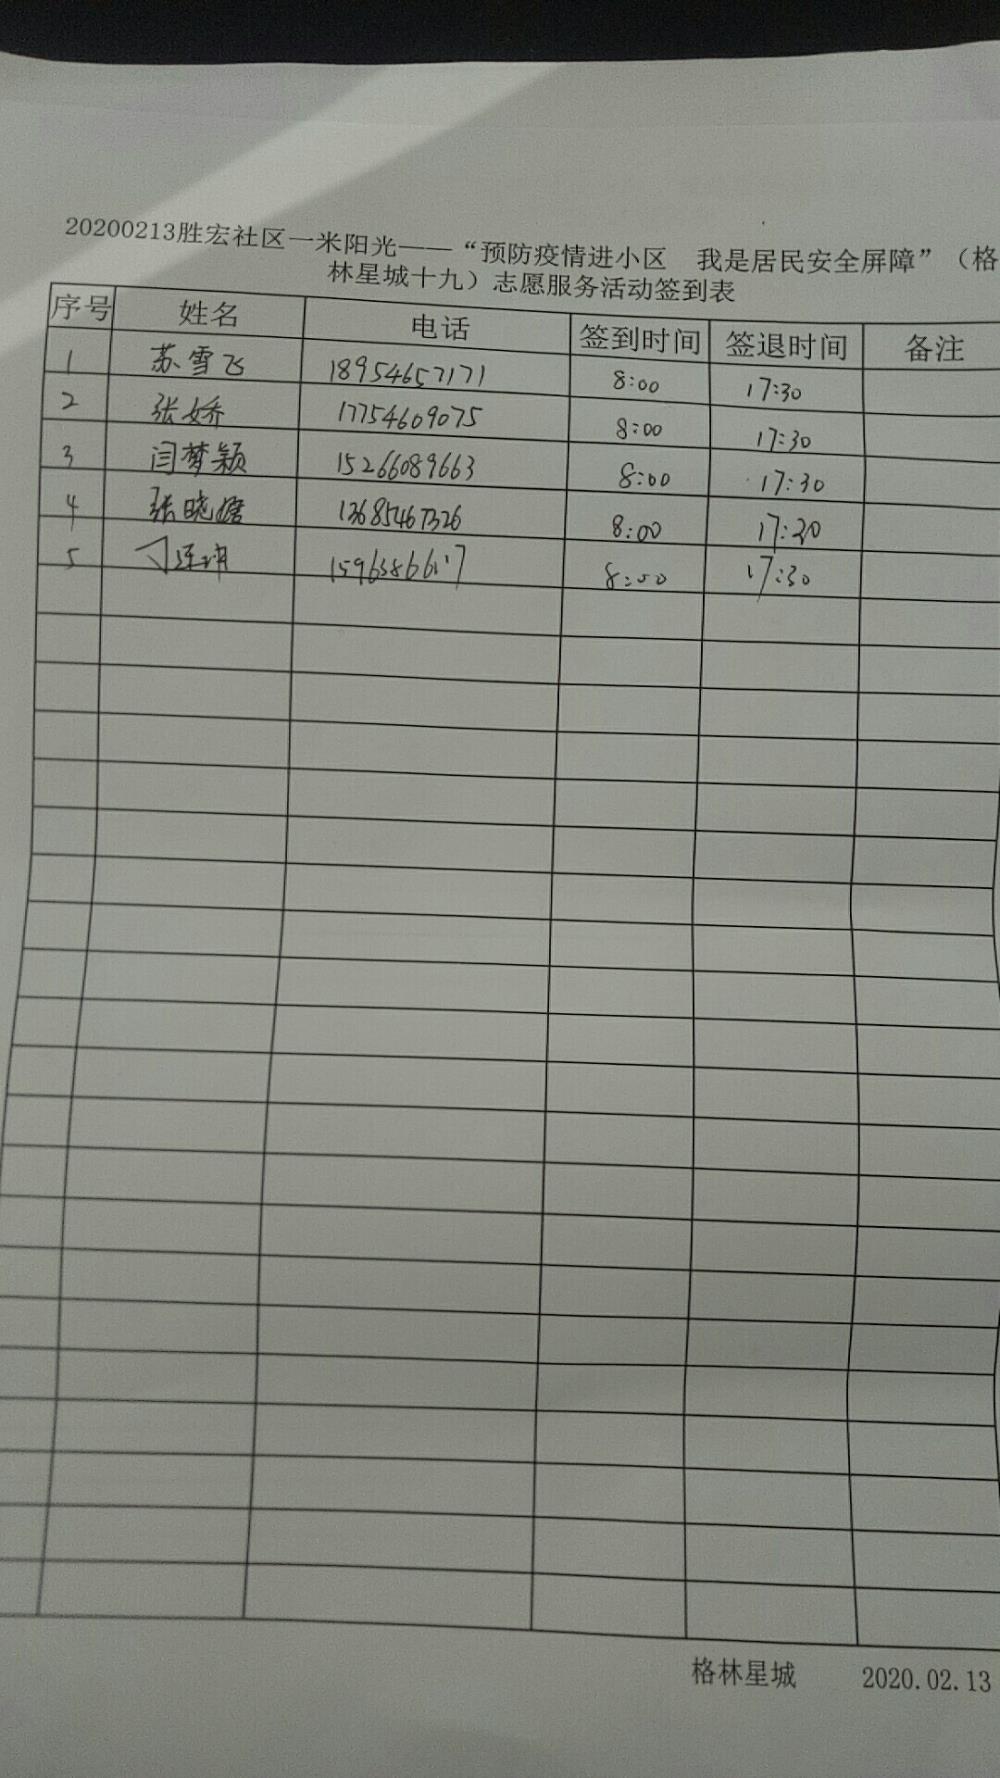 20200213胜宏社区一米阳光——“预防疫情进小区 我是居民安全屏障”（格
林星城十九）志愿服务活动签到表
序号 姓名 电话 签到时间 签退时间 备注
1 苏雪飞 18954657171 8:00 17:30
2 张娇 17754609075 8:00 17:30
3 闫梦颖 15266089663 8:00 17:30
4 张晓 13685467326 8:00 17:30
5 8:00 17:30
格林星城 2020.02.13